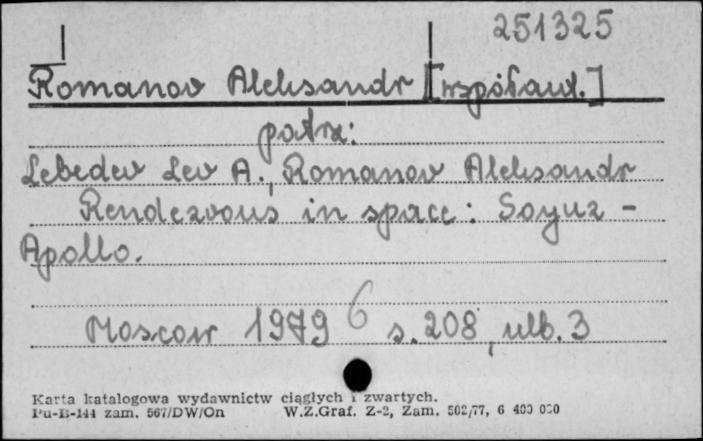 251325
Romanov Aleksandr [współaut.]
patrz:
Lebedev Lev A., Romanov Aleksandr
Rendezvous in space: Soyuz -
Apollo.
Moscow 1979 6 s. 208, ulb. 3
Karta katalogowa wydawnictw ciągłych i zwartych.
Pu-B-144 zam. 567/DW/On W.Z.Graf. Z-2, Zam. 502/77, 6 400 000